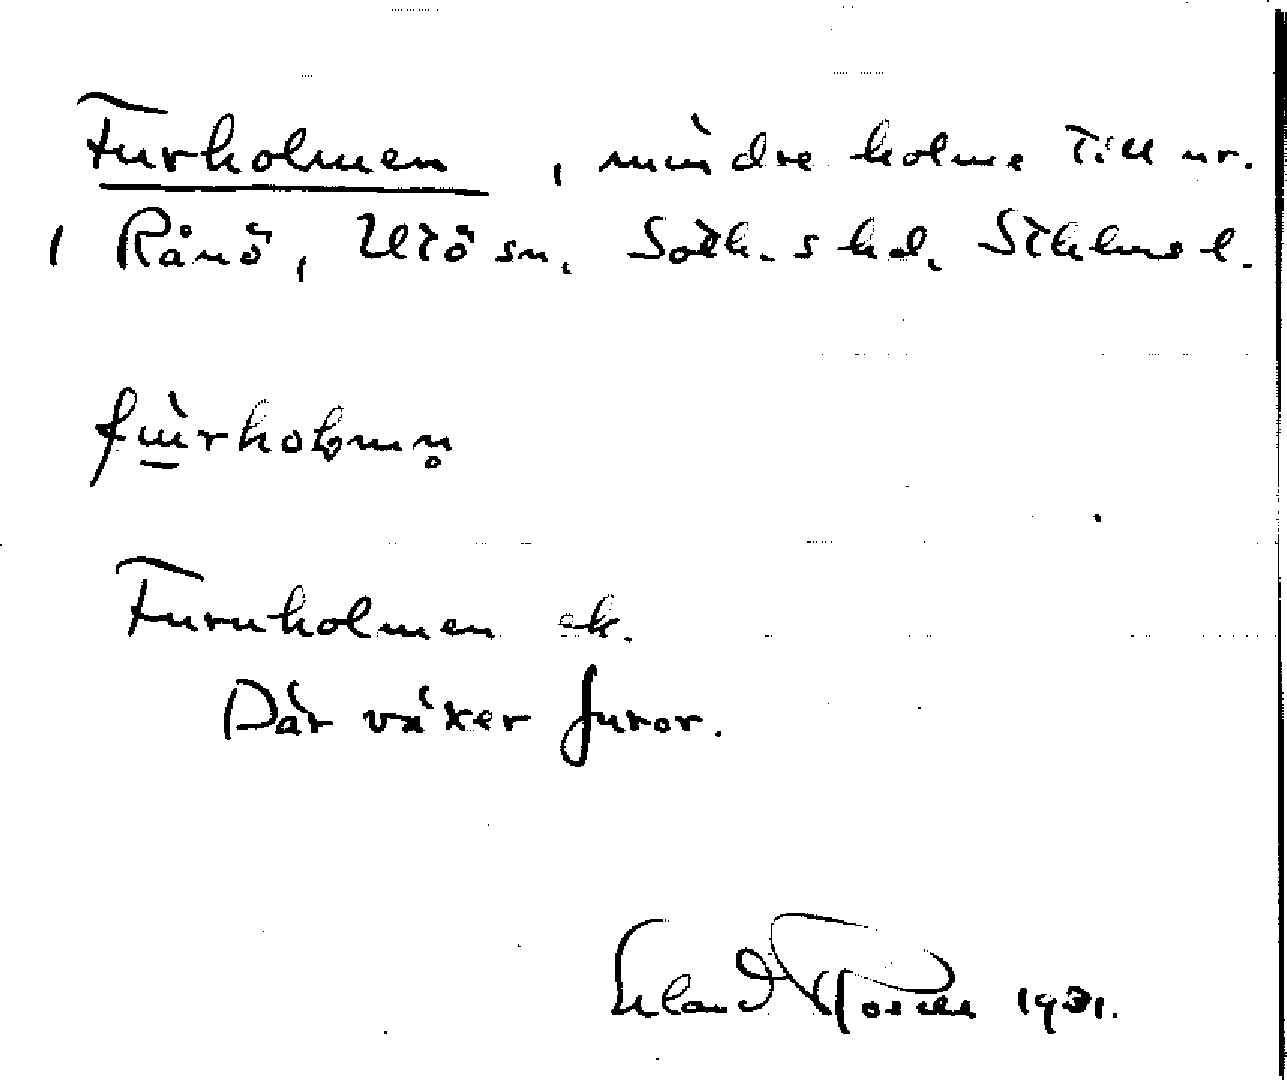 Furholmen, mindre holme till nr.
1 Rånö, Utö sn, Soth.s hd, Sthlms l.
fu̲rholmn̥
Furuholmen ek.
Där växer furor.
Erland Rosell 1931.